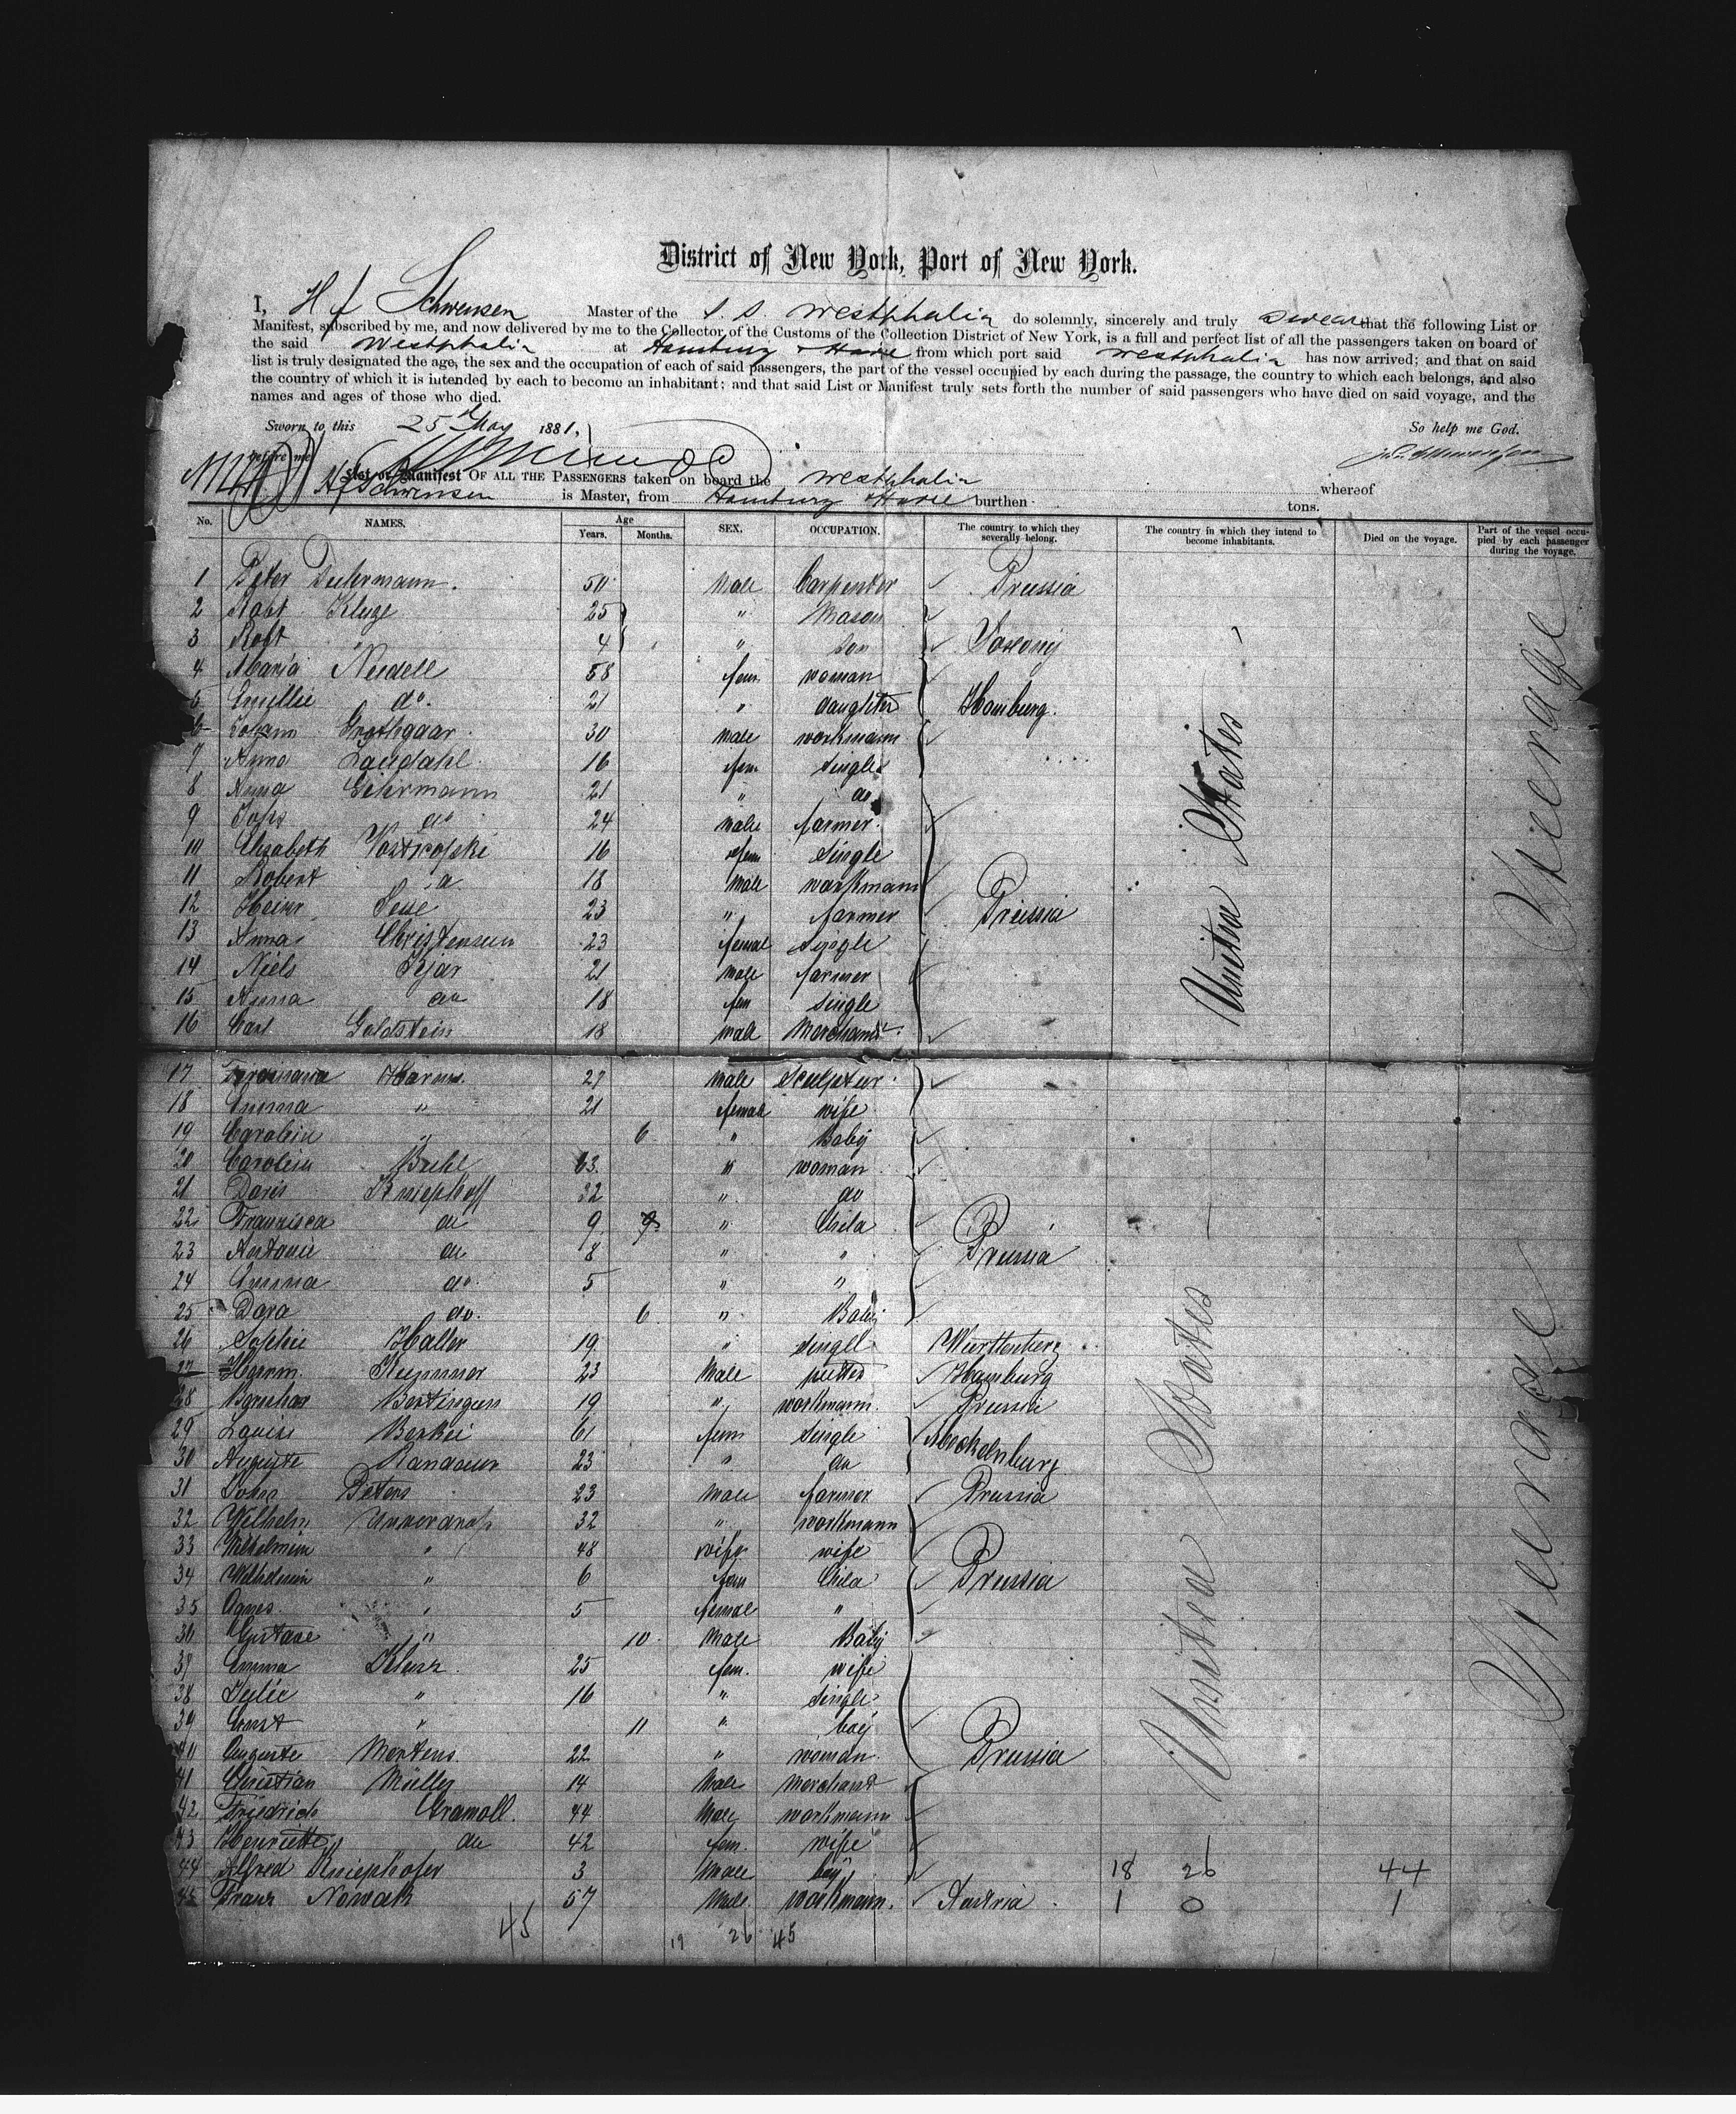 District of New York, Port of New York.
I, H f Schwensen Master of the S. S. Westphalia do solemnly, sincerely and truly swear that the following List or
Manifest, subscribed by me, and now delivered by me to the Collector of the Customs of the Collection District of New York, is a full and perfect list of all the passengers taken on board of
the said Westphalia at Hamburg & Havre from which port said Westphalia has now arrived; and that on said
list is truly designated the age, the sex and the occupation of each of said passengers, the part of the vessel occupied by each during the passage, the country to which each belongs, and also
the country of which it is intended by each to become an inhabitant; and that said List or Manifest truly sets forth the number of said passengers who have died on said voyage, and the
names and ages of those who died.
Sworn to this 25 May 1881, So help me God.
before me
List or Manifest OF ALL THE PASSENGERS taken on board the Westphalia whereof
H f Schwensen is Master, from Hamburg Havre burthen tons.
No. NAMES. Age Years. Months. SEX. OCCUPATION. The country to which they severally belong. The country in which they intend to become inhabitants. Died on the voyage. Part of the vessel occupied by each passenger during the voyage.
1 Peter 50 Male Carpenter Prussia
2 Robt Kluge 25 " Mason
3 Robt " 4 " Son Saxony
4 Maria Neidell 58 fem woman
5 Emillie do. 21 " daughter Hamburg.
6 Johann Grothgaar 30 male workmann
7 Anna Landahl 16 fem. single
8 Anna Gehrmann 21 " do
9 do 24 male farmer
10 Elisabeth 16 fem single
11 Robert do 18 male workmann
12 Heinr. 23 " farmer Preussia
13 Anna Christensen 23 femal single
14 Niels Pejar 21 male farmer
15 Anna do 18 fem single
16 Carl Goldstein 18 male Merchant
United States
Steerage
17 Ferdinand Harms 27 Male Sculptur
18 Emma " 21 female wife
19 Carolin " 6 " Baby
20 Carolin Buhl 63 " woman
21 Doris Kniephoff 32 " do
22 Francisca do 9 " Child
23 Antonie do 8 " " Prussia
24 Emma do 5 " "
25 Dora do. 6 " Baby
26 Sophie Haller 19 " singel Württenberg
27 Herm. Kummer 23 Male Hamburg
28 19 " workmann. Prussia
29 Louise 61 fem single Mecklenburg
30 Auguste 23 " do
31 Johs Peters 23 Male farmer Prussia
32 Wilhelm 32 " workmann
33 Wilhelmin " 48 wife wife
34 Wilhelmin " 6 fem Child Prussia
35 Agnes " 5 female "
36 Gustave " 10 Male Baby
37 Emma 25 fem. wife
38 Julie " 16 " single
39 Ernst " 11 " boy
40 Auguste Mertens 22 " woman Prussia
41 Christian Müller 14 Male merchant
42 Friedrich Gramoll 44 Male workmann
43 Henriette do 42 fem. wife
44 Alfred Kniephofer 3 Male boy 18 26 44
45 Franz Nowak 57 Male workmann. Austria 1 0 1
United States
Steerage
45 19 26 45